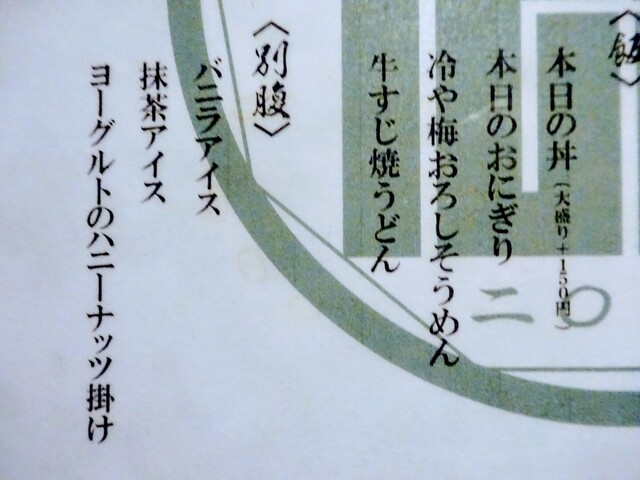 〈飯〉
本日の丼（大盛り＋150円）
本日のおにぎり
冷や梅おろしそうめん
牛すじ焼うどん
〈別腹〉
バニラアイス
抹茶アイス
ヨーグルトのハニーナッツ掛け
二〇